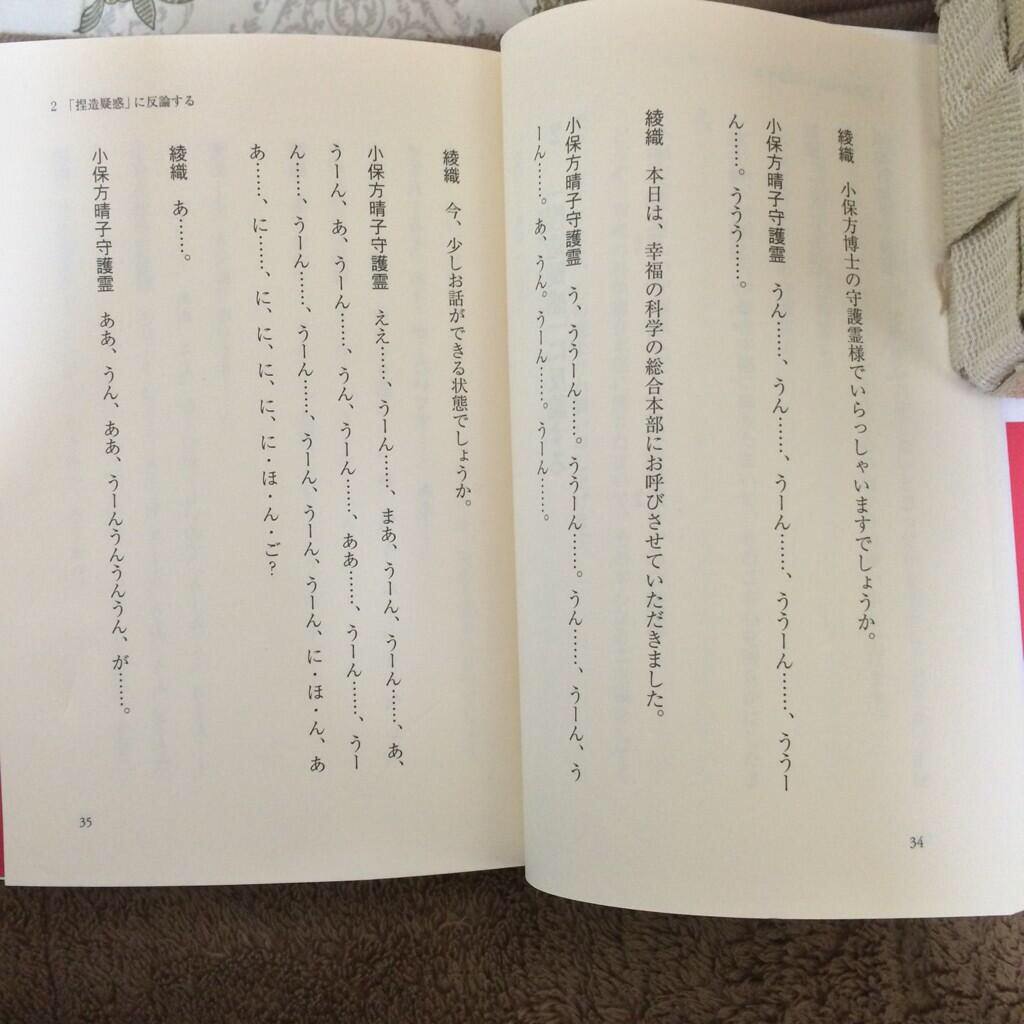 綾織　小保方博士の守護霊様でいらっしゃいますでしょうか。
小保方晴子守護霊　うん……、うん……、うーん……、ううーん……、ううー
ん……。ううう……。
綾織　本日は、幸福の科学の総合本部にお呼びさせていただきました。
小保方晴子守護霊　う、ううーん……。ううーん……。うん……、うーん、う
ーん……。あ、うん。うーん……。うーん……。
34
2 「捏造疑惑」に反論する
綾織　今、少しお話ができる状態でしょうか。
小保方晴子守護霊　ええ……、うーん……、まあ、うーん、うーん……、あ、
うーん、あ、うーん……、うん、うーん……、ああ……、うーん……、うー
ん……、うーん……、うーん……、うーん、うーん、うーん、に・ほ・ん、あ
あ……、に……、に、に、に、に・ほ・ん・ご？
綾織　あ……。
小保方晴子守護霊　ああ、うん、ああ、うーんうんうんうん、が……。
35